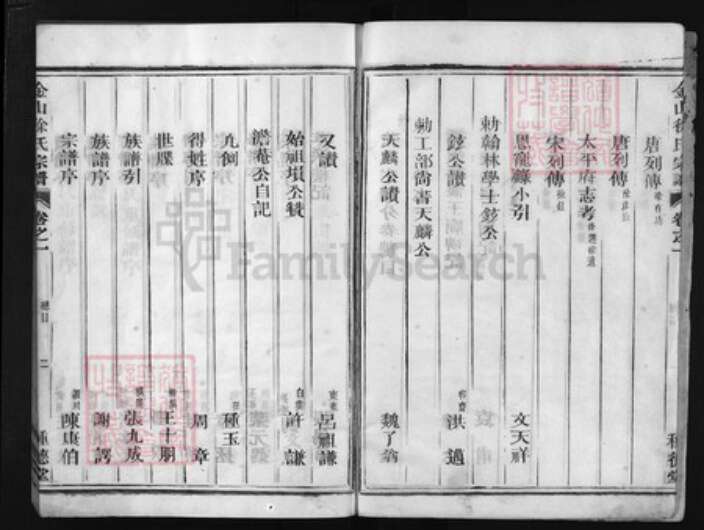 金山徐氏宗譜 卷之一
唐列傳
唐列傳
太平府志考
宋列傳
恩寵錄小引 文天祥
勅翰林學士鉉公
鉉公讚 洪适
勅工部尚書天麟公
天麟公讚 魏了翁
又讚 呂祖謙
始祖塤公贊 白雲 許謙
澹菴公自記
凡例 種玉
得姓序 周章
世牒序 王十朋
族譜引 張九成
族譜序 謝諤
宗譜序 陳康伯
金山徐氏宗譜 卷之一 總目 二
FamilySearch